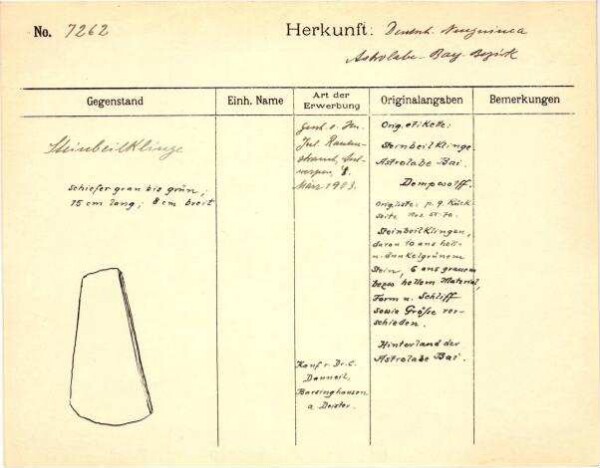 No. 7262
Herkunft: Deutsch. Neuguinea
Astrolabe-Bay-Bezirk
Gegenstand
Einh. Name
Art der Erwerbung
Originalangaben
Bemerkungen
Steinbeilklinge
schiefer grau bis grün;
15 cm lang; 8 cm breit
Gesch. v. Hrn.
Jul. Rauten-
strauch, Ant-
werpen,
März 1903.
Kauf v. Dr. C.
Danneil,
Barsinghausen
a. Deister.
Orig. etikette:
Steinbeilklinge
Astrolabe Bai.
Dempwolff.
Orig. liste: p. 9. Rück-
seite Nrs 55-70.
Steinbeilklingen,
davon 10 aus hell-
u. dunkelgrünem
Stein, 6 aus grauem
bezw hellem Material,
Form u. Schliff
sowie Größe ver-
schieden.
Hinterland der
Astrolabe Bai.